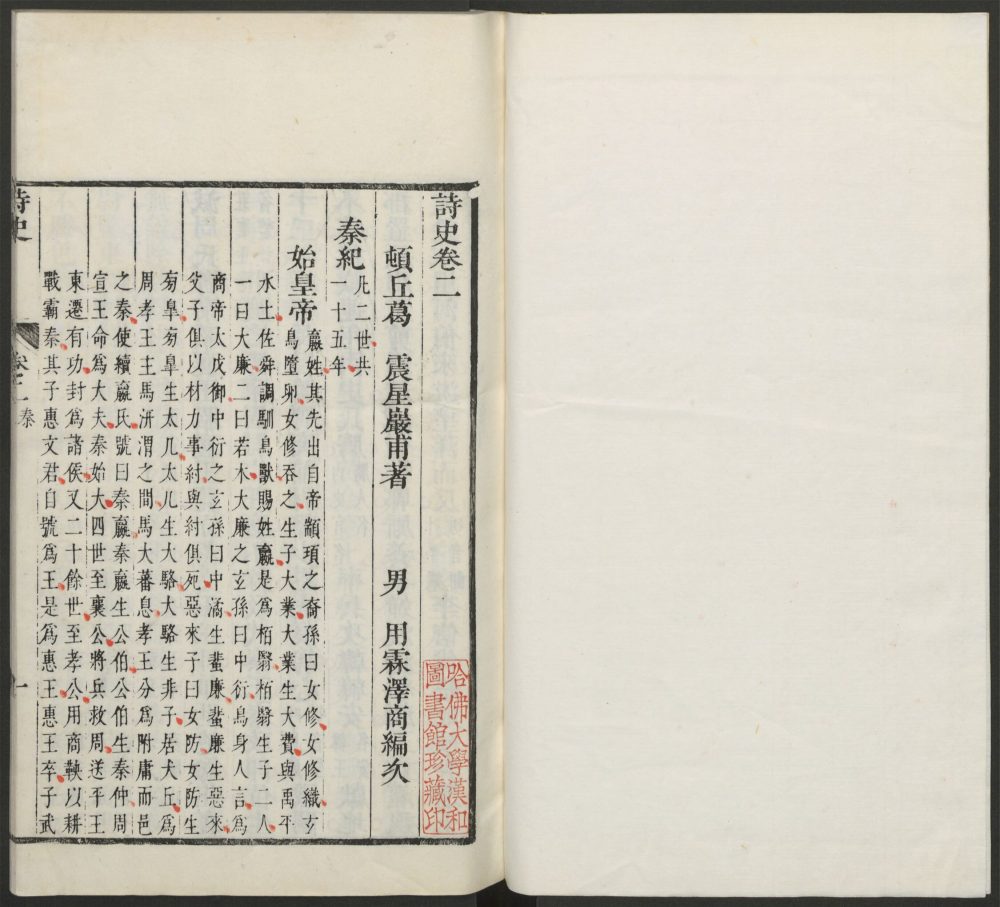 詩史卷二
頓丘葛 震星巖甫著 男 用霖澤商編次
秦紀凡二世共一十五年
始皇帝嬴姓其先出自帝顓頊之裔孫曰女修女修織玄
鳥墮卵女修吞之生子大業大業生大費與禹平
水土佐舜調馴鳥獸賜姓嬴是爲栢翳栢翳生子二人
一曰大廉二曰若木大廉之玄孫曰中衍鳥身人言爲
商帝太戊御中衍之玄孫曰中潏生蜚廉蜚廉生惡來
父子俱以材力事紂與紂俱死惡來子曰女防女防生
旁臯旁臯生太几太几生大駱大駱生非子居犬丘爲
周孝王主馬汧渭之間馬大蕃息孝王分爲附庸而邑
之秦使續嬴氏號曰秦嬴秦嬴生公伯公伯生秦仲周
宣王命爲大夫秦始大四世至襄公將兵救周送平王
東遷有功封爲諸侯又二十餘世至孝公用商鞅以耕
戰霸秦其子惠文君自號爲王是爲惠王惠王卒子武
詩史
卷二 秦
一
哈佛大學漢和
圖書館珍藏印